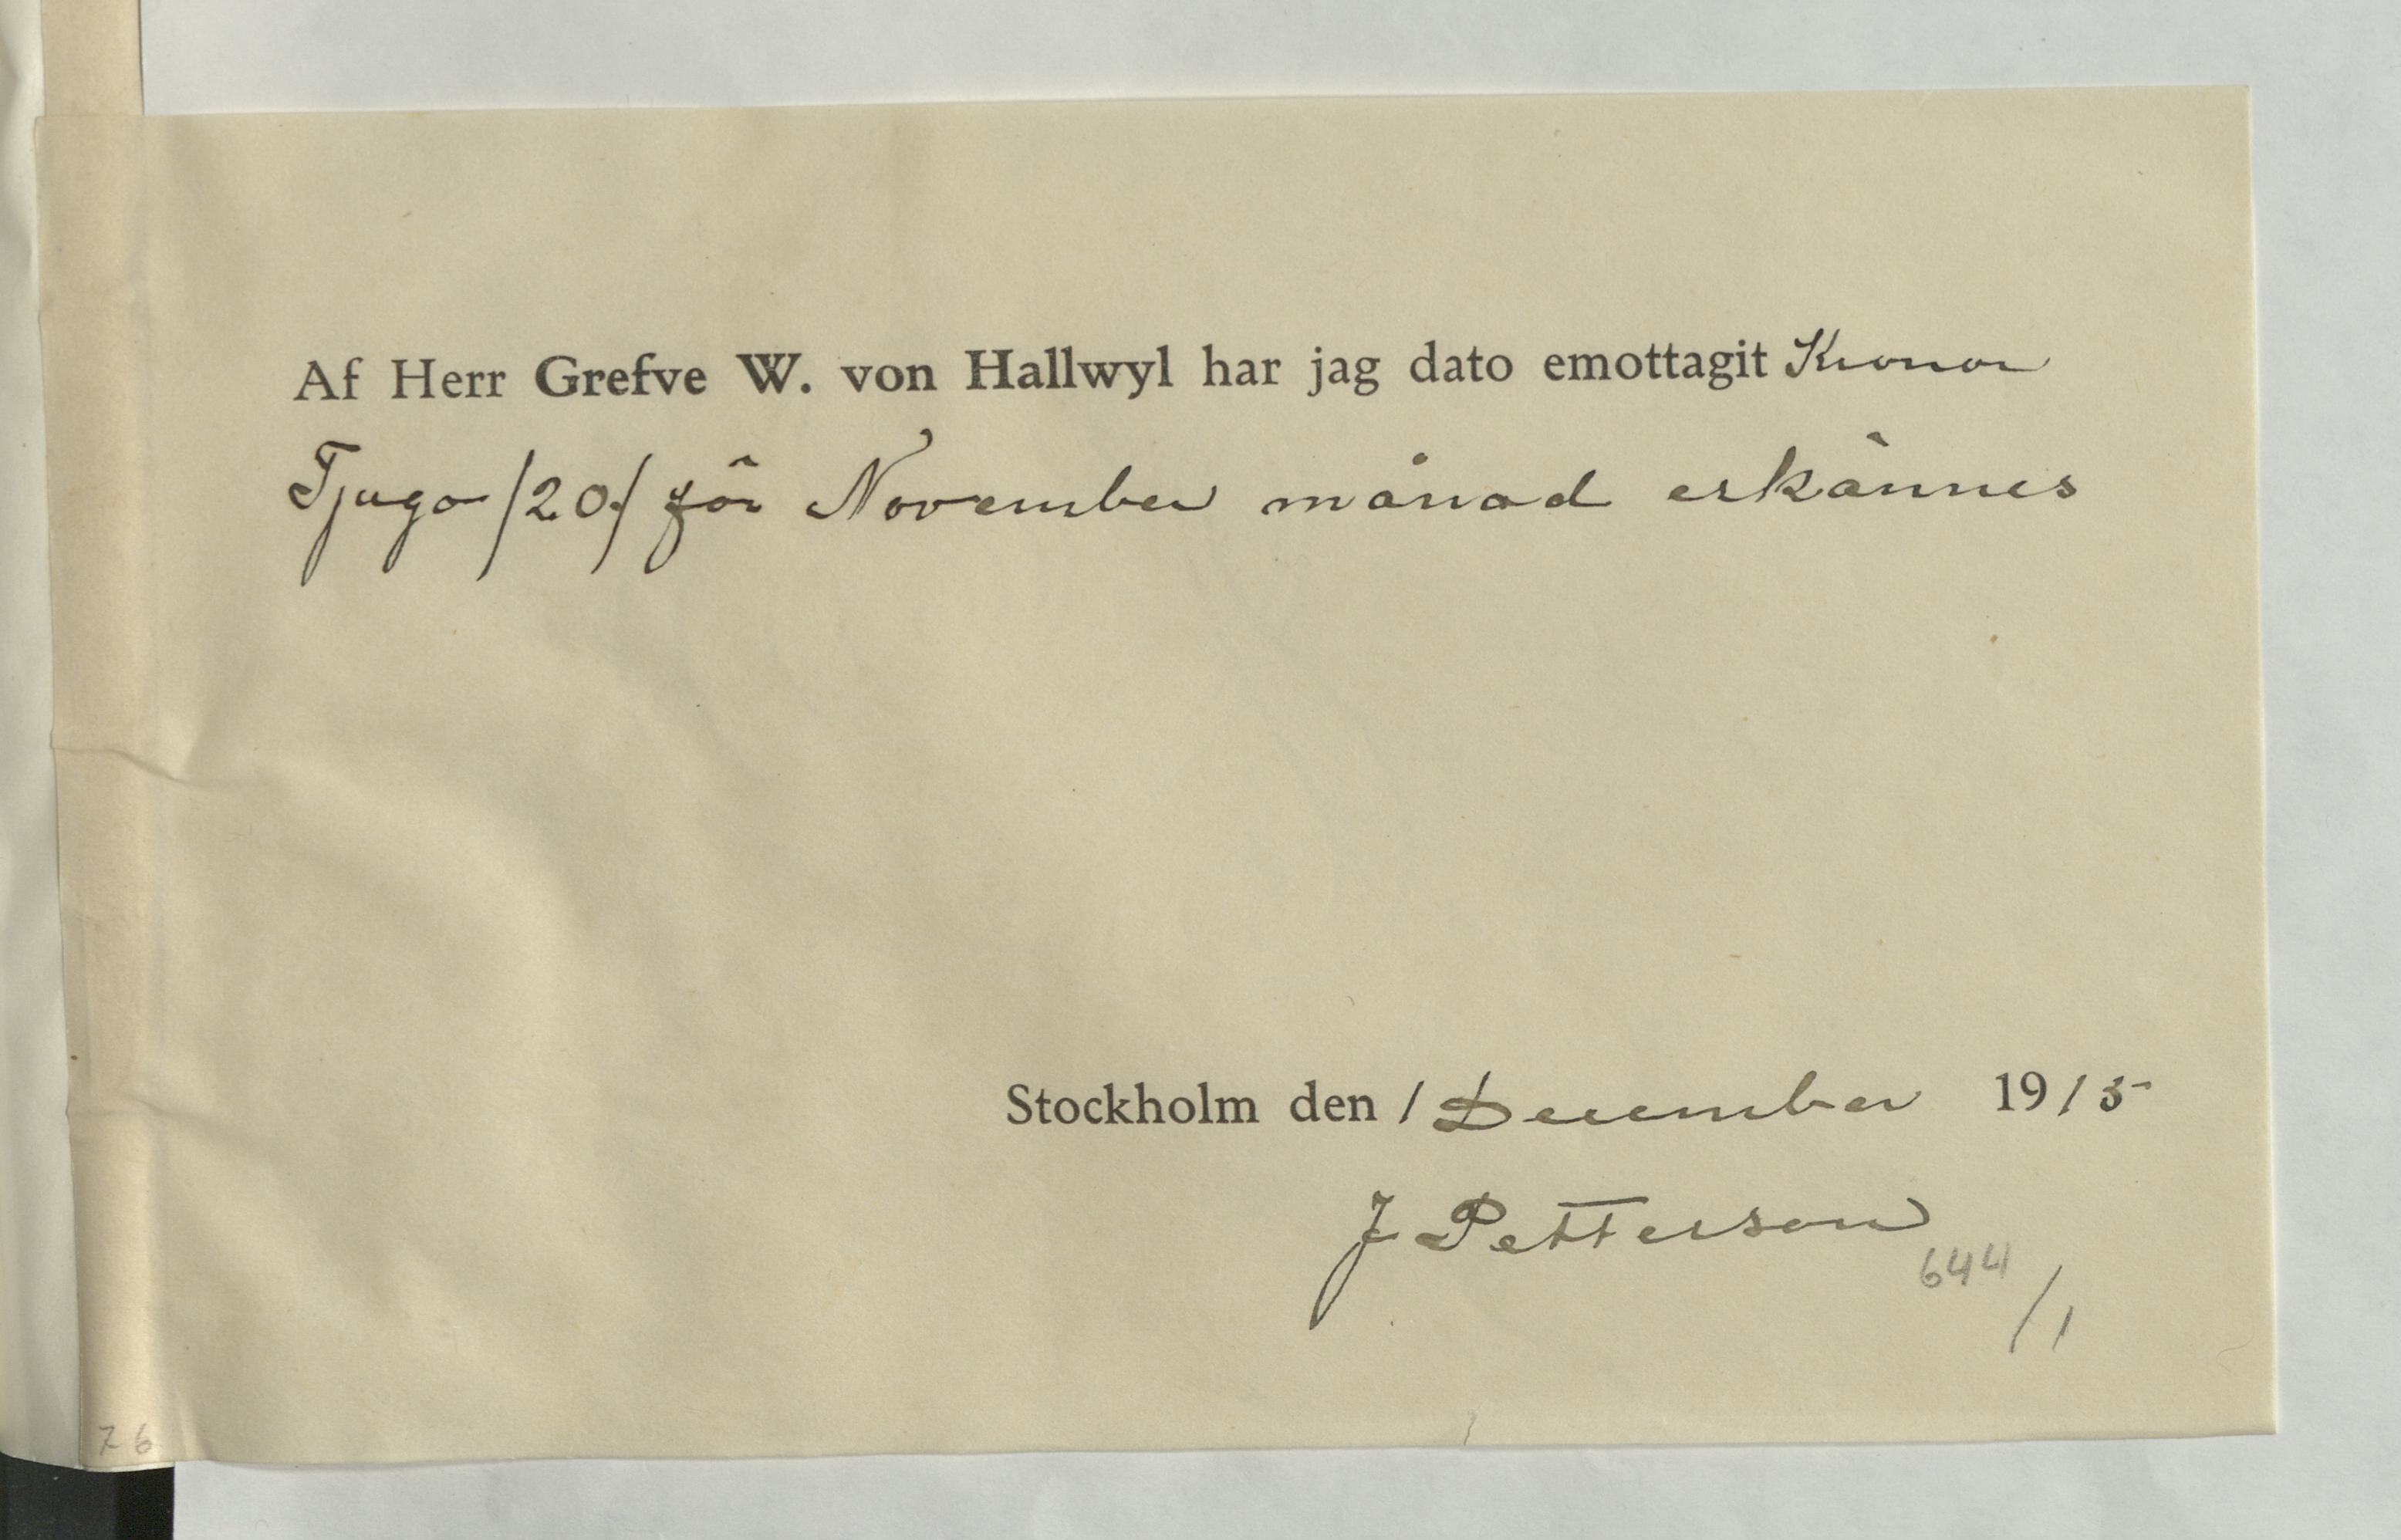 Af Herr Grefve W. von Hallwyl har jag dato emottagit Kronor
Tjugo /20/ för November månad erkännes
Stockholm den 1 December 1915
J Petterson
644
/1
76